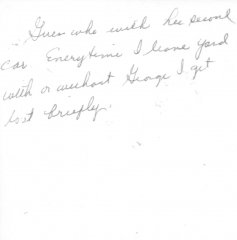 Guess who with her second
car Everytime I leave yard
with or without George I get
lost briefly.